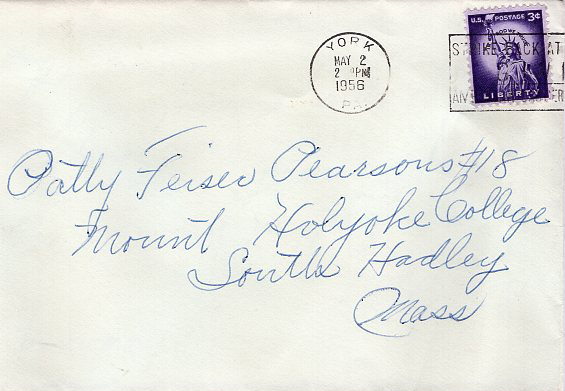 U.S. POSTAGE 3¢
IN GOD WE TRUST
LIBERTY
YORK
MAY 2
2 PM
1956
PA.
STRIKE BACK AT
Patty Feiser Pearsons #18
Mount Holyoke College
South Hadley
Mass